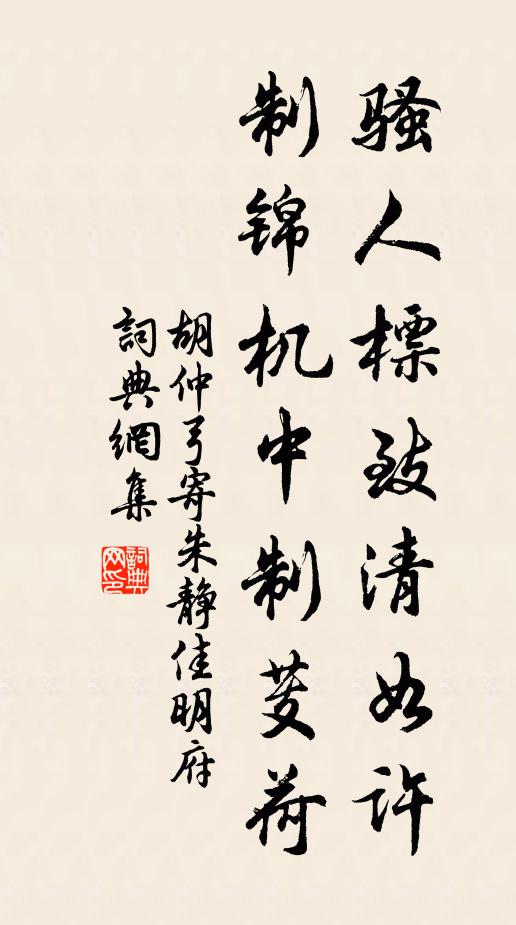 骚人標致清如许
制锦机中制芰荷
胡仲弓寄朱静佳明府
詞典網集
詞典网印